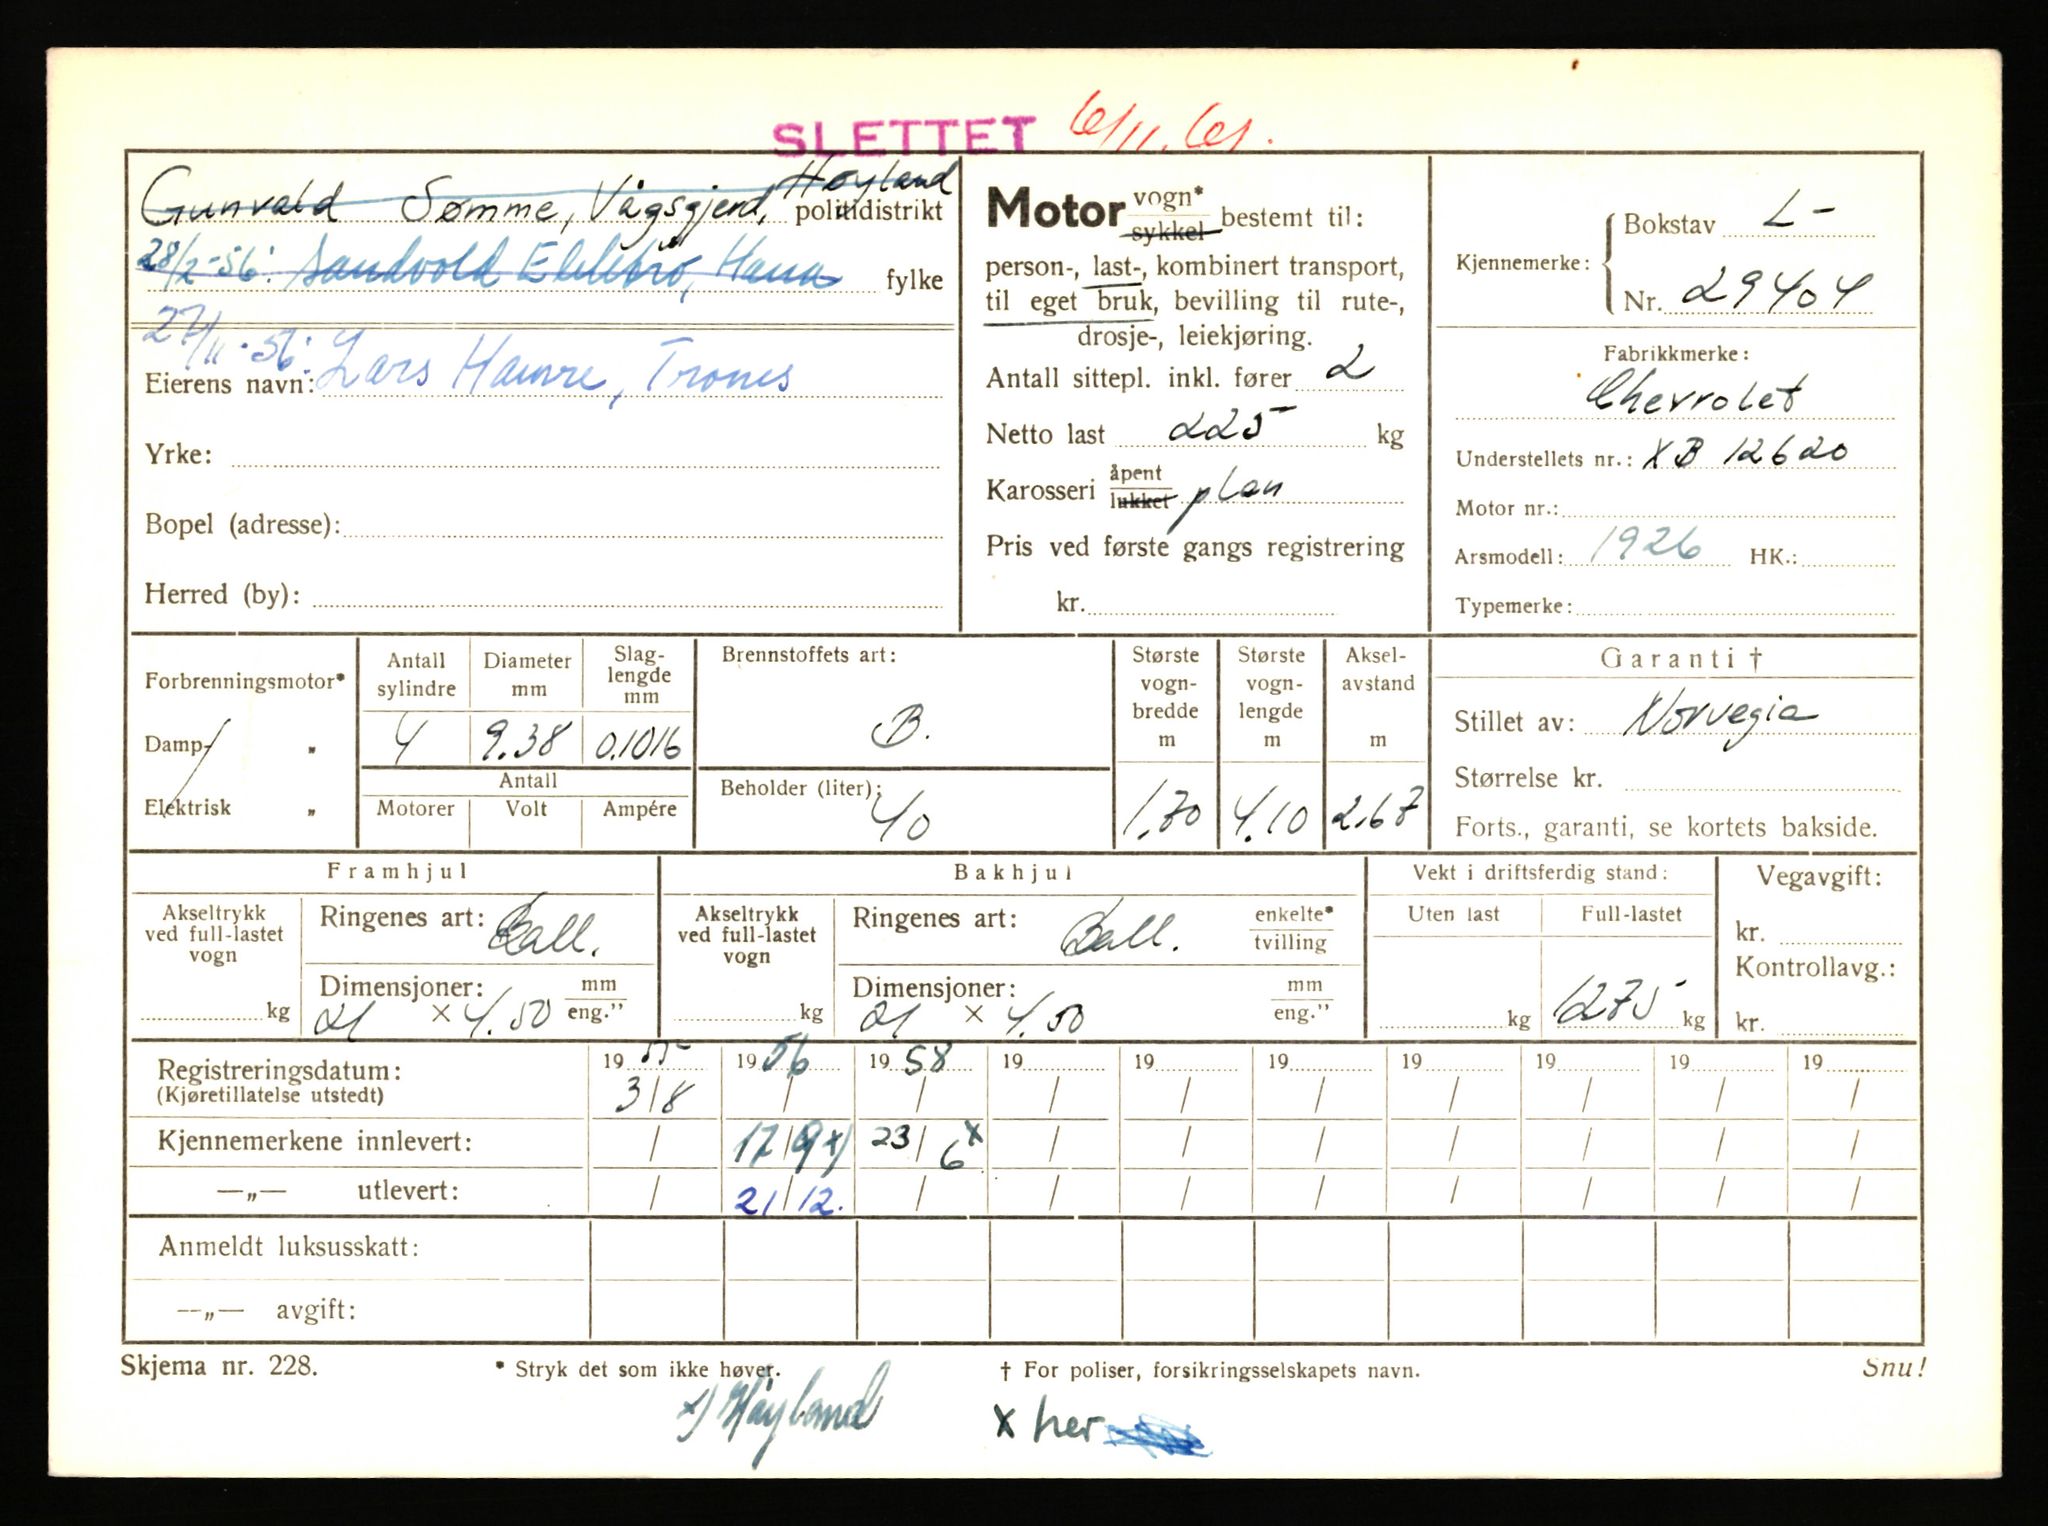 SLETTET 6/11.61.
Gunvald Sømme, Vågsgjerd, Høyland politidistrikt
28/2-56: Sandvold, Hana fylke
27/11-56: Eierens navn: Lars Hamre, Trones
Yrke:
Bopel (adresse):
Herred (by):
Motor vogn* sykkel bestemt til:
person-, last-, kombinert transport,
til eget bruk, bevilling til rute-,
drosje-, leiekjøring.
Antall sittepl. inkl. fører 2
Netto last 225 kg
Karosseri åpent lukket plan
Pris ved første gangs registrering
kr.
Kjennemerke: Bokstav L-
Nr. 29404
Fabrikkmerke:
Chevrolet
Understellets nr.: XB 12620
Motor nr.:
Arsmodell: 1926 HK.:
Typemerke:
Forbrenningsmotor*
Damp- "
Elektrisk "
Antall sylindre 4
Diameter mm 9.38
Slag-lengde mm 0.1016
Antall
Motorer Volt Ampére
Brennstoffets art:
B.
Beholder (liter): 40
Største vogn-bredde m 1.70
Største vogn-lengde m 4.10
Aksel-avstand m 2.67
Garanti †
Stillet av: Norvegia
Størrelse kr.
Forts., garanti, se kortets bakside.
Framhjul
Akseltrykk ved full-lastet vogn kg
Ringenes art: Ball.
Dimensjoner: 21 × 4.50 mm eng."
Bakhjul
Akseltrykk ved full-lastet vogn kg
Ringenes art: Ball. enkelte* tvilling
Dimensjoner: 21 × 4.50 mm eng."
Vekt i driftsferdig stand:
Uten last kg
Full-lastet 1275 kg
Vegavgift:
kr.
Kontrollavg.:
kr.
Registreringsdatum: 19 55 19 56 19 58 19 19 19 19 19 19 19
(Kjøretillatelse utstedt) 3/8 / / / / / / / / /
Kjennemerkene innlevert: / 17/9 x) 23/6 x / / / / / / /
—„— utlevert: / 21/12. / / / / / / / /
Anmeldt luksusskatt:
—„— avgift:
Skjema nr. 228. * Stryk det som ikke høver. † For poliser, forsikringsselskapets navn. Snu!
x) Høyland x her